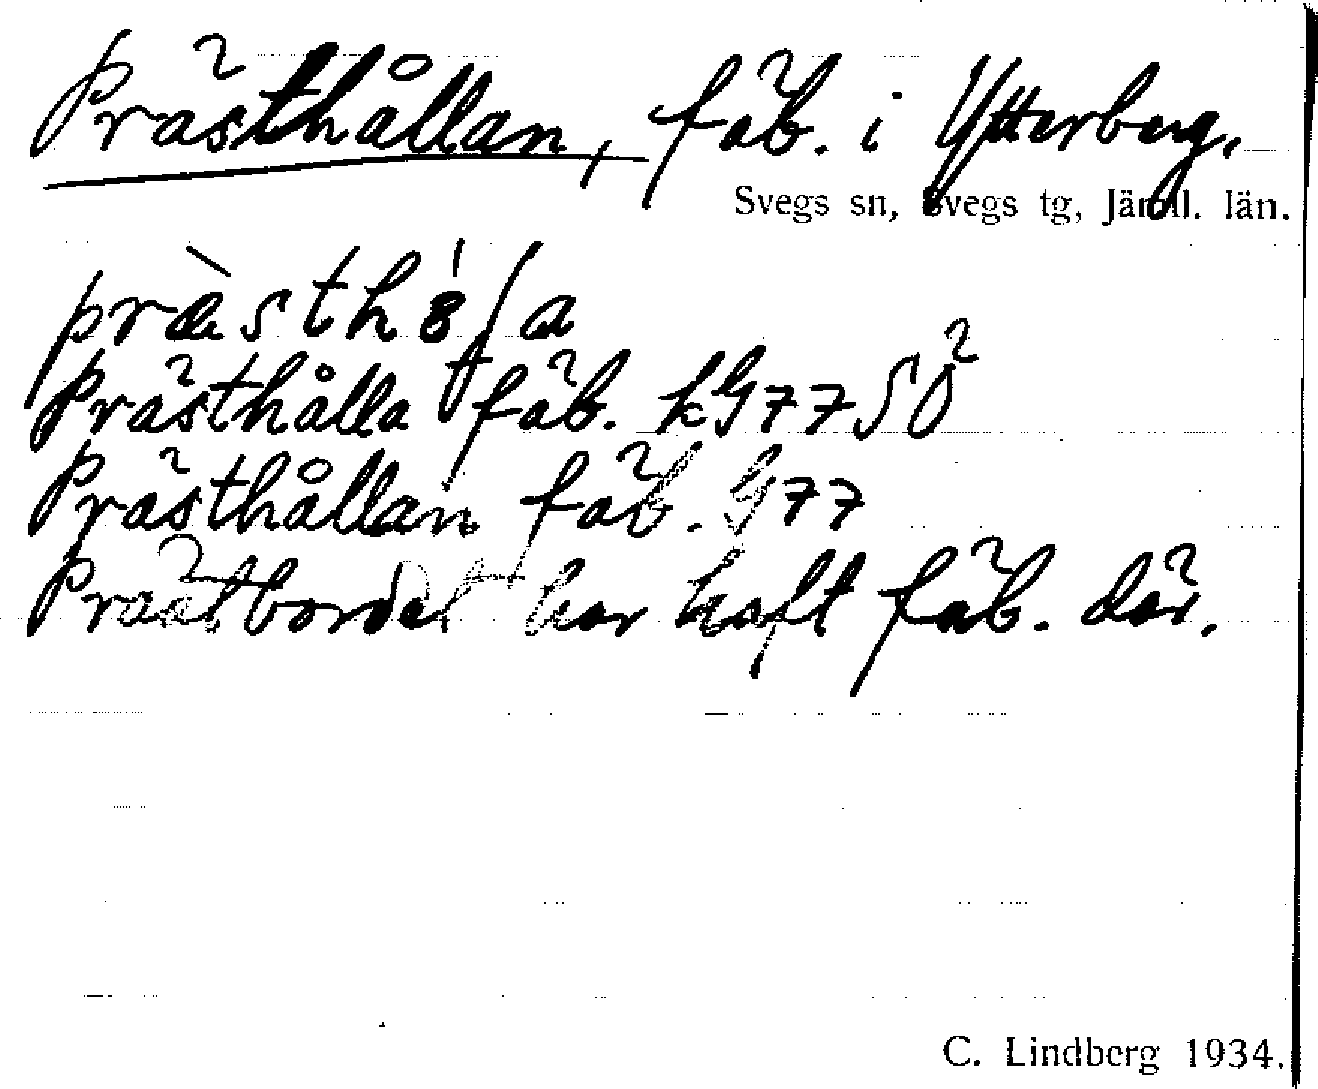 Prästhållan, fäb. i Ytterberg,
Svegs sn, Svegs tg, Jämtl. län.
Prästhålla fäb. kG77SÖ
Prästhållan fäb. G77
Prästbordet har haft fäb. där.
C. Lindberg 1934.